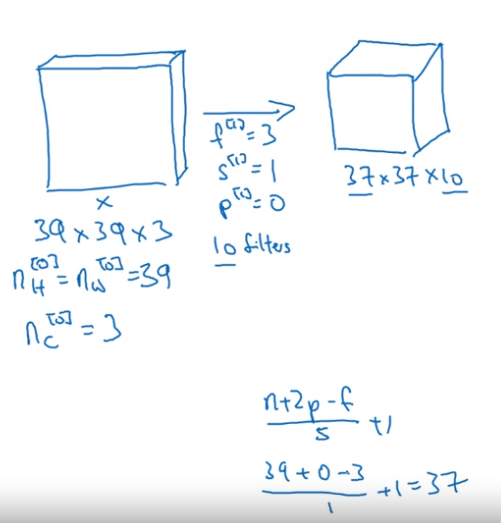 x
39 x 39 x 3
n_H^[0] = n_W^[0] = 39
n_C^[0] = 3
f^[1] = 3
s^[1] = 1
p^[1] = 0
10 filters
37 x 37 x 10
n+2p-f
s
+1
39+0-3
1
+1=37